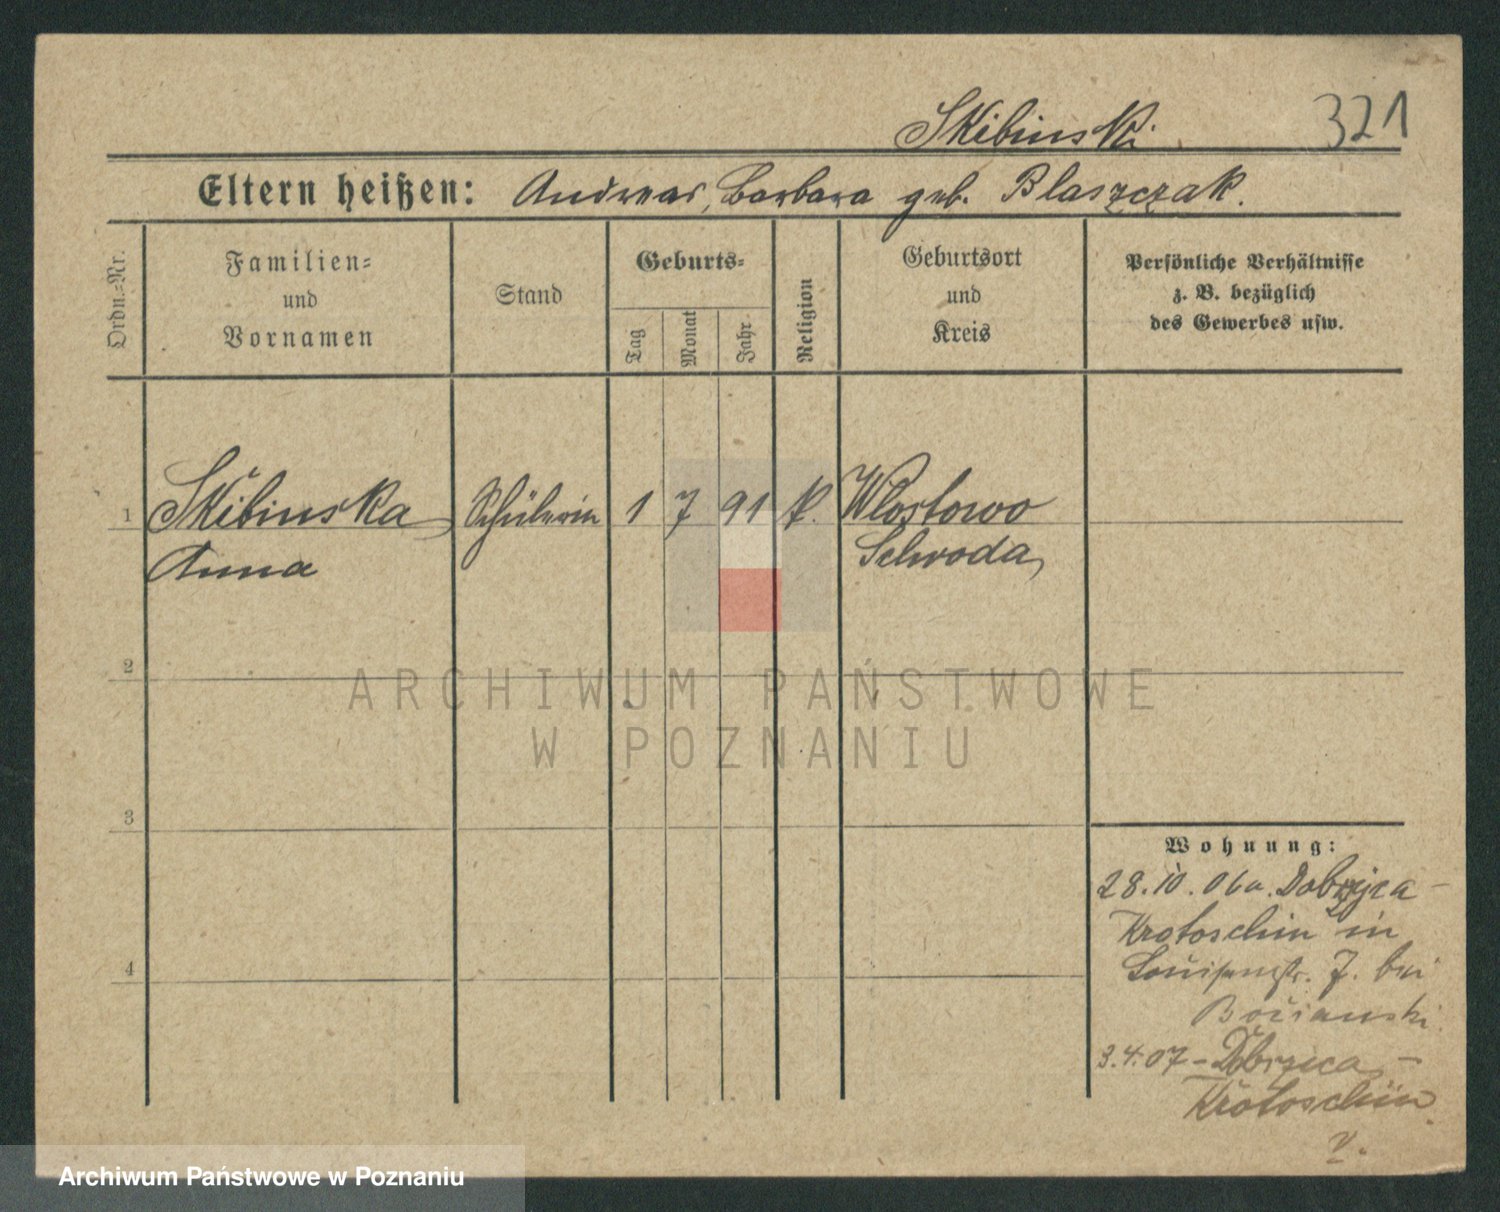 Skibinski.
321
Eltern heißen: Andreas, Barbara geb. Blaszczak.
Ordn.=Nr.
Familien=
und
Vornamen
Stand
Geburts=
Tag
Monat
Jahr
Religion
Geburtsort
und
Kreis
Persönliche Verhältnisse
z. B. bezüglich
des Gewerbes usw.
1 Skibinska Schülerin 1 7 91 k. Wlostowo
Anna Schroda
2
ARCHIWUM PAŃSTWOWE
W POZNANIU
3
Wohnung:
28.10.06 a. Dobrzyca -
Krotoschin in
Louisenstr. 7. bei
4
3.4.07 - Dobrzyca -
Krotoschin
v.
Archiwum Państwowe w Poznaniu